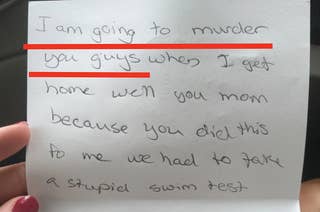 I am going to murder
you guys when I get
home well you mom
because you did this
to me we had to take
a stupid swim test